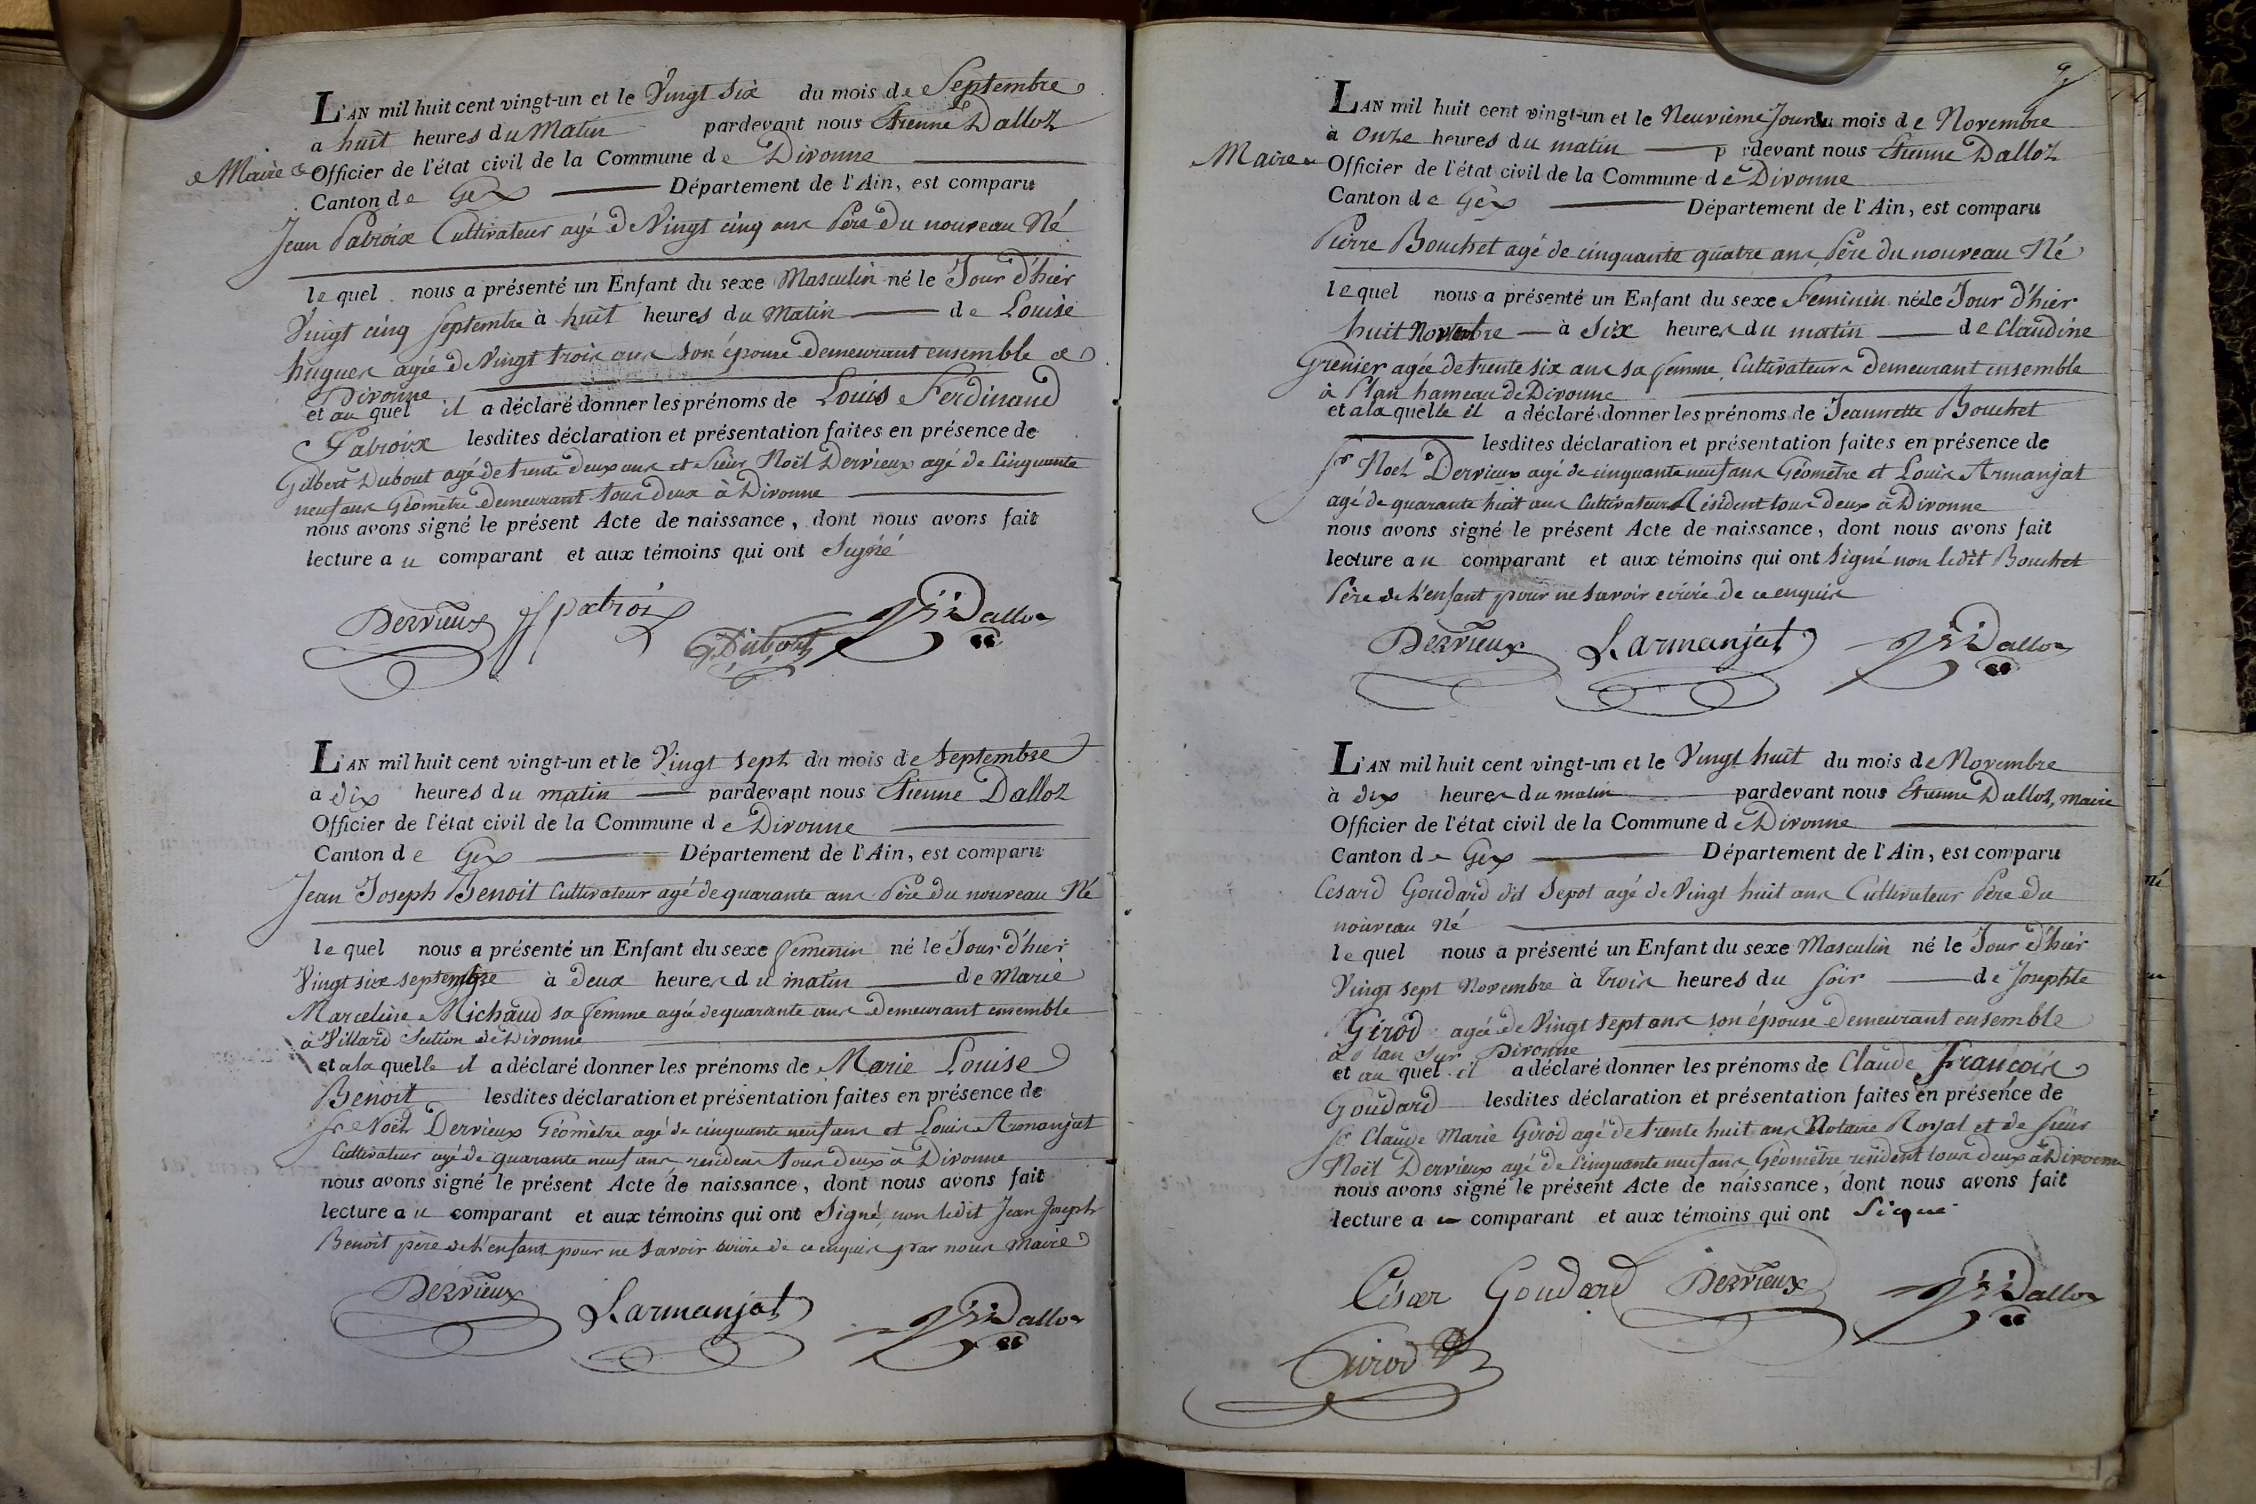 L'AN mil huit cent vingt-un et le Vingt Six du mois de Septembre
a huit heures du Matin pardevant nous Etienne Dalloz
Maire & Officier de l'état civil de la Commune de Divonne
Canton de Gex Département de l'Ain, est comparu
Jean Patroix Cultivateur agé de Vingt cinq ans Père du nouveau Né
le quel nous a présenté un Enfant du sexe Masculin né le Jour d'hier
Vingt cinq Septembre à huit heures du Matin de Louise
hugues agée de Vingt trois ans Son épouse demeurant ensemble a
Divonne
et au quel il a déclaré donner les prénoms de Louis Ferdinand
Patroix lesdites déclaration et présentation faites en présence de
Gilbert Dubout agé de trente deux ans et Sieur Noël Dervieux agé de Cinquante
neuf ans Géomètre demeurant tous deux à Divonne
nous avons signé le présent Acte de naissance, dont nous avons fait
lecture au comparant et aux témoins qui ont Signé
Dervieux J patroix
G Dubout Dalloz
L'AN mil huit cent vingt-un et le Vingt Sept du mois de Septembre
a dix heures du matin pardevant nous Etienne Dalloz
Officier de l'état civil de la Commune de Divonne
Canton de Gex Département de l'Ain, est comparu
Jean Joseph Benoit Cultivateur agé de quarante ans Père du nouveau Né
le quel nous a présenté un Enfant du sexe femenin né le Jour d'hier
Vingt six septembre à deux heures du matin de Marie
Marceline Michaud sa femme agée de quarante ans Demeurant ensemble
à Villard Section de Divonne
et a la quelle il a déclaré donner les prénoms de Marie Louise
Benoit lesdites déclaration et présentation faites en présence de
Sr Noël Dervieux Géomètre agé de cinquante neuf ans et Louis Armanjat
Cultivateur agé de quarante neuf ans residens tous deux à Divonne
nous avons signé le présent Acte de naissance, dont nous avons fait
lecture au comparant et aux témoins qui ont Signé, non ledit Jean Joseph
Benoit père de l'enfant pour ne Savoir écrire de ce enquis par nous Maire
Dervieux L armanjat Dalloz
9
L'AN mil huit cent vingt-un et le Neuvième Jour du mois de Novembre
à Onze heures du matin pardevant nous Etienne Dalloz
Maire Officier de l'état civil de la Commune de Divonne
Canton de Gex Département de l'Ain, est comparu
Pierre Bouchet agé de cinquante quatre ans Père du nouveau Né
le quel nous a présenté un Enfant du sexe Feminin né le Jour d'hier
huit Novembre à Six heures du matin de Claudine
Grenier agée de trente six ans sa femme, Cultivateurs demeurant ensemble
à Plan hameau de Divonne
et a la quelle il a déclaré donner les prénoms de Jeannette Bouchet
lesdites déclaration et présentation faites en présence de
Sr Noel Dervieux agé de cinquante neuf ans Géomètre et Louis Armanjat
agé de quarante huit ans Cultivateur Résident tous deux à Divonne
nous avons signé le présent Acte de naissance, dont nous avons fait
lecture au comparant et aux témoins qui ont Signé non ledit Bouchet
Père de L'enfant pour ne Savoir écrire de ce enquis
Dervieux L armanjat Dalloz
L'AN mil huit cent vingt-un et le Vingt huit du mois de Novembre
à dix heures du matin pardevant nous Etienne Dalloz, maire
Officier de l'état civil de la Commune de Divonne
Canton de Gex Département de l'Ain, est comparu
Césard Goudard dit Sepot agé de Vingt huit ans Cultivateur Père du
nouveau Né
le quel nous a présenté un Enfant du sexe Masculin né le Jour d'hier
Vingt sept Novembre à trois heures du Soir de Josephte
Girod agée de Vingt sept ans son épouse demeurant ensemble
à Plan sur Divonne
et au quel il a déclaré donner les prénoms de Claude François
Goudard lesdites déclaration et présentation faites en présence de
Sr Claude Marie Girod agé de trente huit ans Notaire Royal et de Sieur
Noël Dervieux agé de Cinquante neuf ans Géomètre résident tous deux à Divonne
nous avons signé le présent Acte de naissance, dont nous avons fait
lecture au comparant et aux témoins qui ont Signé
César Goudard Dervieux Dalloz
Girod